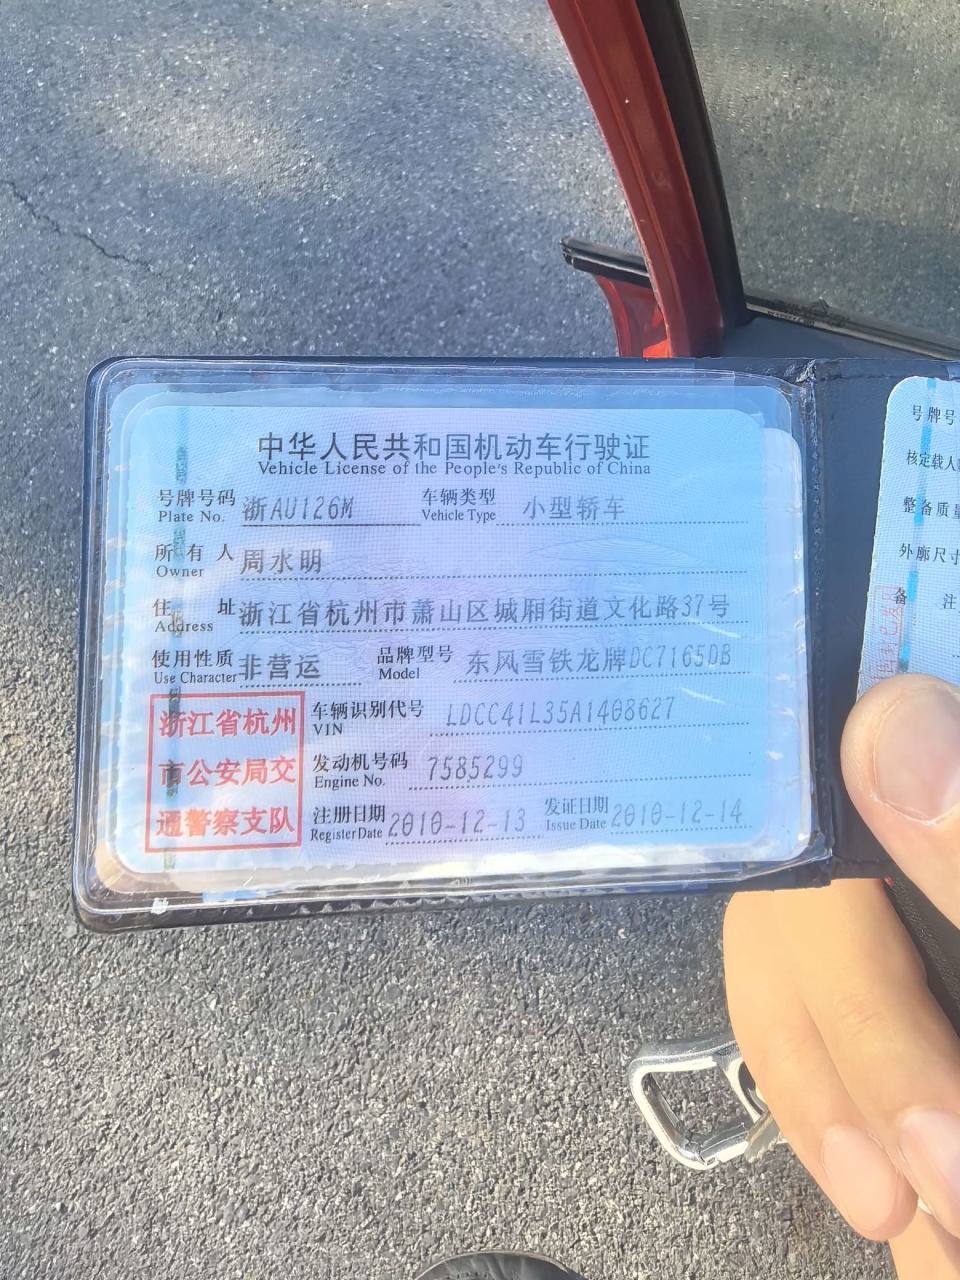 中华人民共和国机动车行驶证
Vehicle License of the People's Republic of China
号牌号码 浙AU126M 车辆类型 小型轿车
Plate No. Vehicle Type
所有人 周水明
Owner
住址 浙江省杭州市萧山区城厢街道文化路37号
Address
使用性质 非营运 品牌型号 东风雪铁龙牌DC7165DB
Use Character Model
浙江省杭州市公安局交通警察支队
车辆识别代号 LDCC41L35A1408627
VIN
发动机号码 7585299
Engine No.
注册日期 2010-12-13 发证日期 2010-12-14
Register Date Issue Date
号牌号
核定载人
整备质量
外廓尺寸
备注